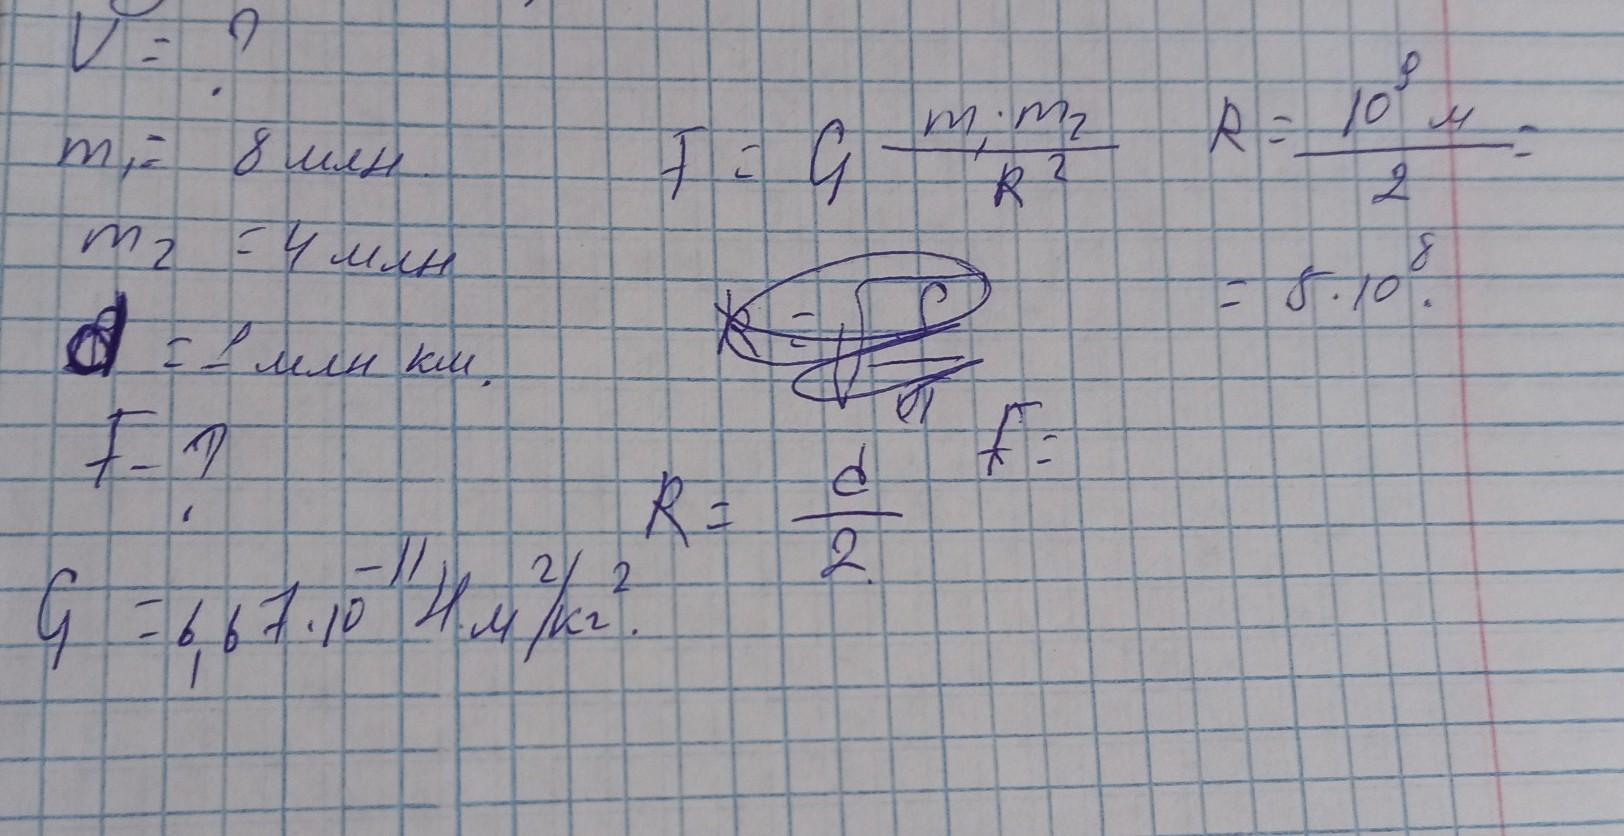 V = ?
m₁ = 8 млн
m₂ = 4 млн
d = 1 млн км.
F - ?
G = 6,67·10⁻¹¹ Н·м²/кг².
F = G m₁·m₂ / R²
R = d / 2
R = 10⁹ м / 2 =
= 5·10⁸.
F =